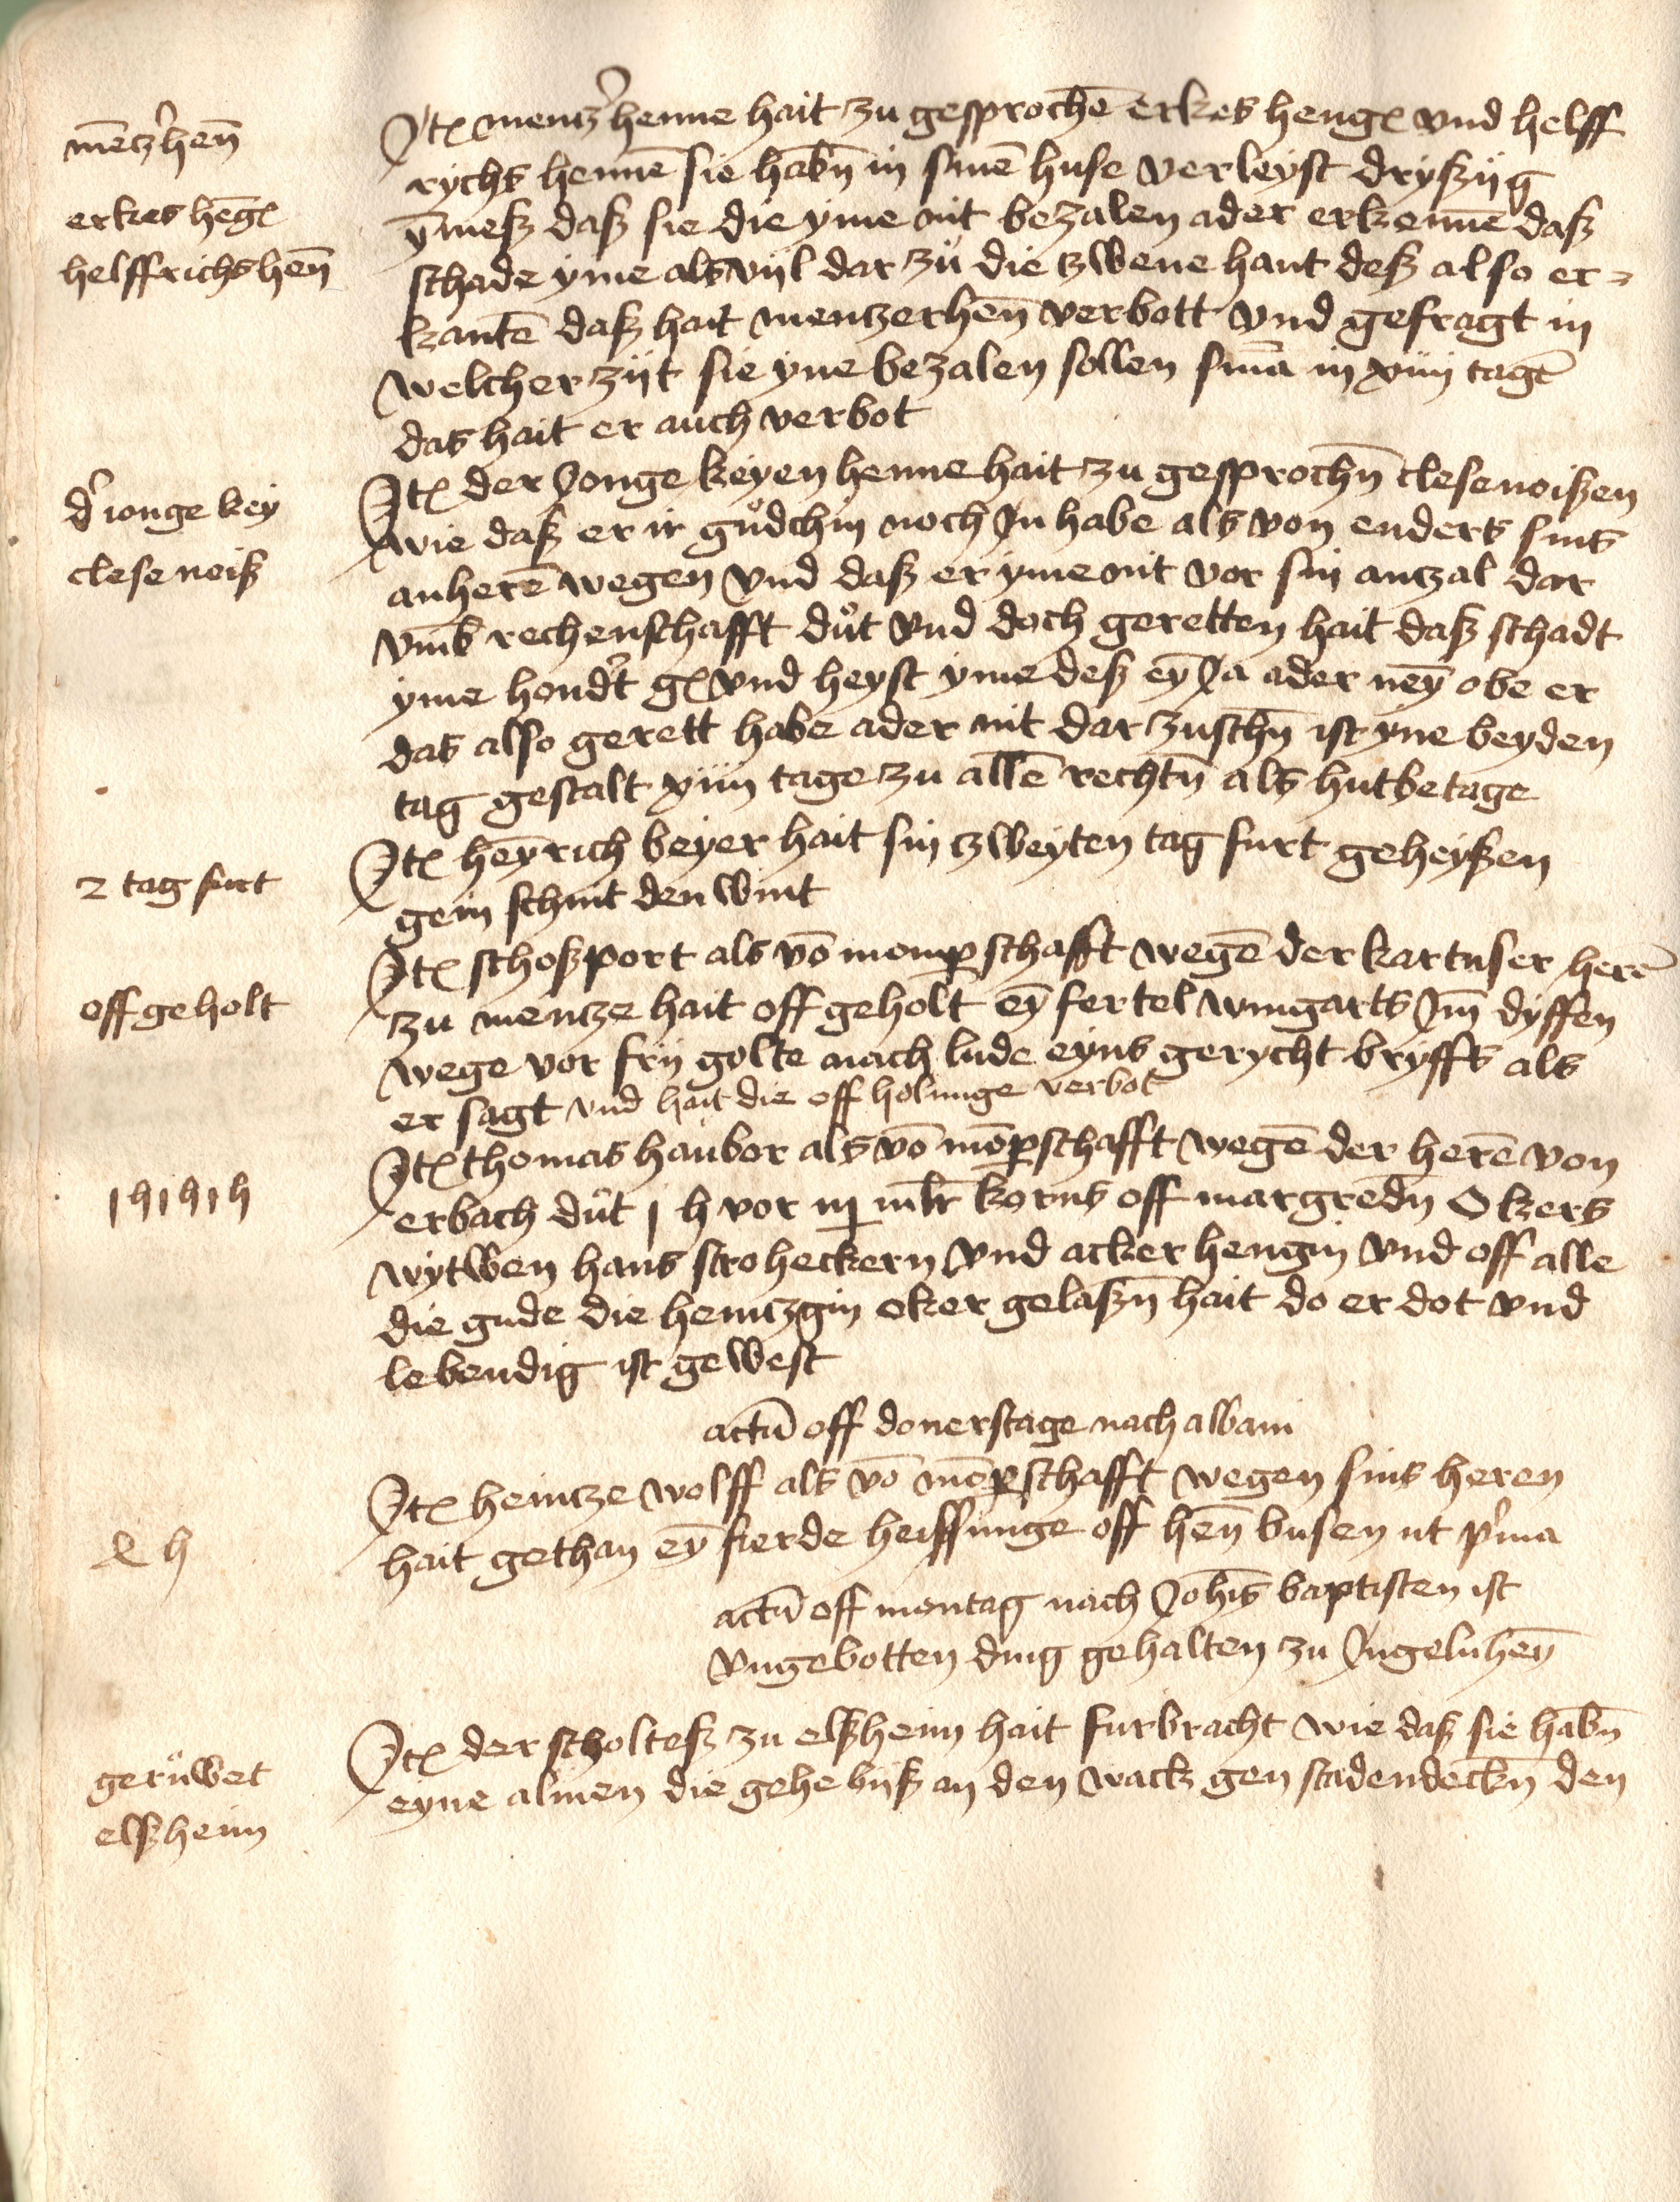 mētz'hen̄
erkes hēgꝭ
helffrichs hen̄
Itꝭ mentz'henne hait zu gesprochē erkes hengꝭ vnd helff
rychs hennē sie habn̄ in sinē huse verleyst dryßijg
ȳmeß daß sie die yme nit bezalen ader erkennē daß
schade yme als vijl dar zů die tzwene hant deß also er-
kantē daß hait mentzerhen̄ verbott vnd gefragt in
welcher zijt sie yne bezalen sollen sīna in xiiij tagē
das hait er auch verbot
d' jonge key
clese noiß
Itꝭ der Jonge keyen henne hait zu gesprochn̄ clese noißen
wie daß er ir gůdchin noch Jn habe als von enders sins
anherē wegen vnd daß er yme nit vor sin antzal dar
vm̄b rechenschafft důt vnd doch geretten hait daß schadt
yme hond't gꝭ vnd heyst yme deß eȳ Ja ader neȳ obe er
das also gerett habe ader nit dar zuschn̄ ist yne beyden
tag gestalt xiiij tage zu allē rechtn̄ als hutbetage
2 tag furt
Itꝭ heȳrich beyer hait sin tzweyten tag furt geheyßen
gein schnit den wint
off geholt
Itꝭ schoßport als vō momꝑschafft wegē der kartuser herē
zu mentze hait off geholt eȳ fertel wingarts Jm̄ dyffen
wege vor frij golte nach lude eyns gerycht bryffs als
er sagt vnd hait die off holunge verbot
j h j h j h
Itꝭ thomas haubor als vō mōꝑschafft wegē der herē von
erbach důt j h vor iij ml̄r korns off margredn̄ Okers
wytwen hans stroheckern vnd acker hengin vnd off alle
die gude die hentzgin oker gelaßn̄ hait do er dot vnd
lebendig ist gewest
actū off donerstage nach albani
Itꝭ heintze wolff als vō mōꝑschafft wegen sins heren
hait gethan eȳ fierde heiffunge off hen̄ busen ut p'ma
actū off montag nach Joh̄is baptisten ist
vngebotten ding gehalten zu Jngeluhen̄
gerůwet
elßheim
Itꝭ der scholteß zu elßheim hait furbracht wie daß sie habn̄
eyne almen die gehe biß an den wack gen stadendeckn̄ den